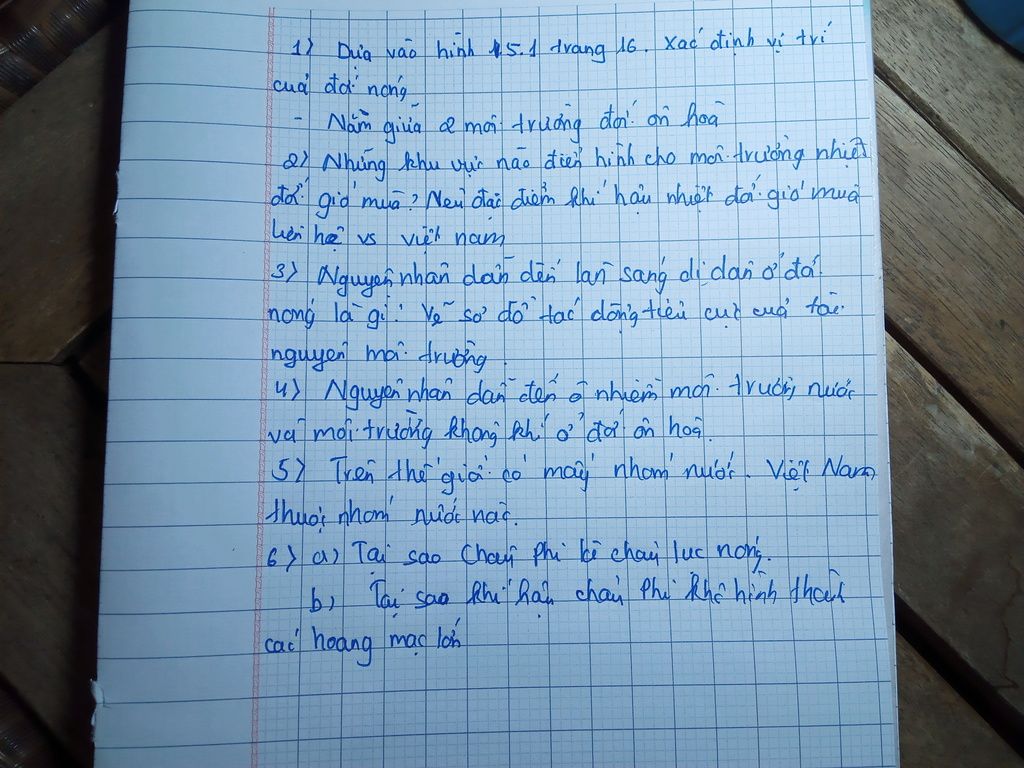 1) Dựa vào hình 15.1 trang 16. Xác định vị trí
của đới nóng
- Nằm giữa 2 môi trường đới ôn hoà
2) Những khu vực nào điển hình cho môi trường nhiệt
đới gió mùa? Nêu đặc điểm khí hậu nhiệt đới gió mùa
liên hệ vs việt nam
3) Nguyên nhân dẫn đến làn sáng di dân ở đới
nóng là gì? Vẽ sơ đồ tác động tiêu cực của tài
nguyên môi trường.
4) Nguyên nhân dẫn đến ô nhiễm môi trường nước
và môi trường không khí ở đới ôn hoà.
5) Trên thế giới có mấy nhóm nước. Việt Nam
thuộc nhóm nước nào.
6) a) Tại sao Châu Phi là châu lục nóng.
b) Tại sao khí hậu châu Phi khô hình thành
các hoang mạc lớn